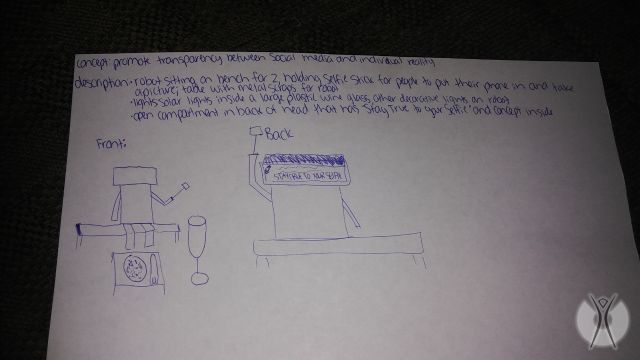 concept: promote transparency between social media and individual reality
description: • robot sitting on bench for 2, holding selfie stick for people to put their phone in and take
a picture; table with metal scraps for robot
• lights: solar lights inside a large plastic wine glass, other decorative lights on robot
• open compartment in back of head that has "Stay True to your Selfie" and concept inside
Front:
Back
STAY TRUE TO YOUR SELFIE